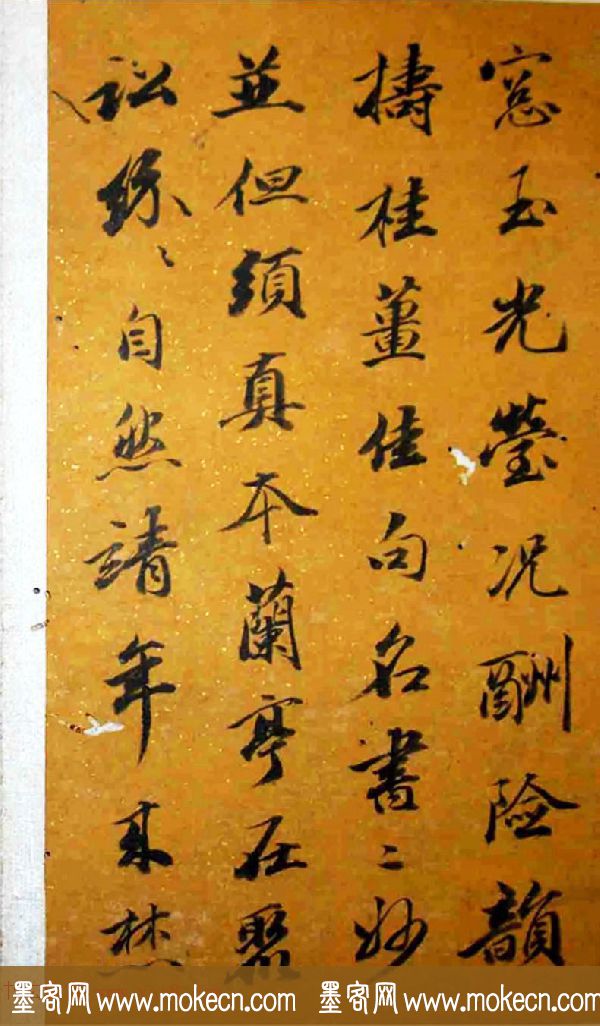 窓玉光瑩況酬險韻
擣桂薑佳句名書〻妙
並但須真本蘭亭在聚
訟紛〻自然靖年来焚
墨客网 www.mokecn.com 墨客网 www.mokecn.com